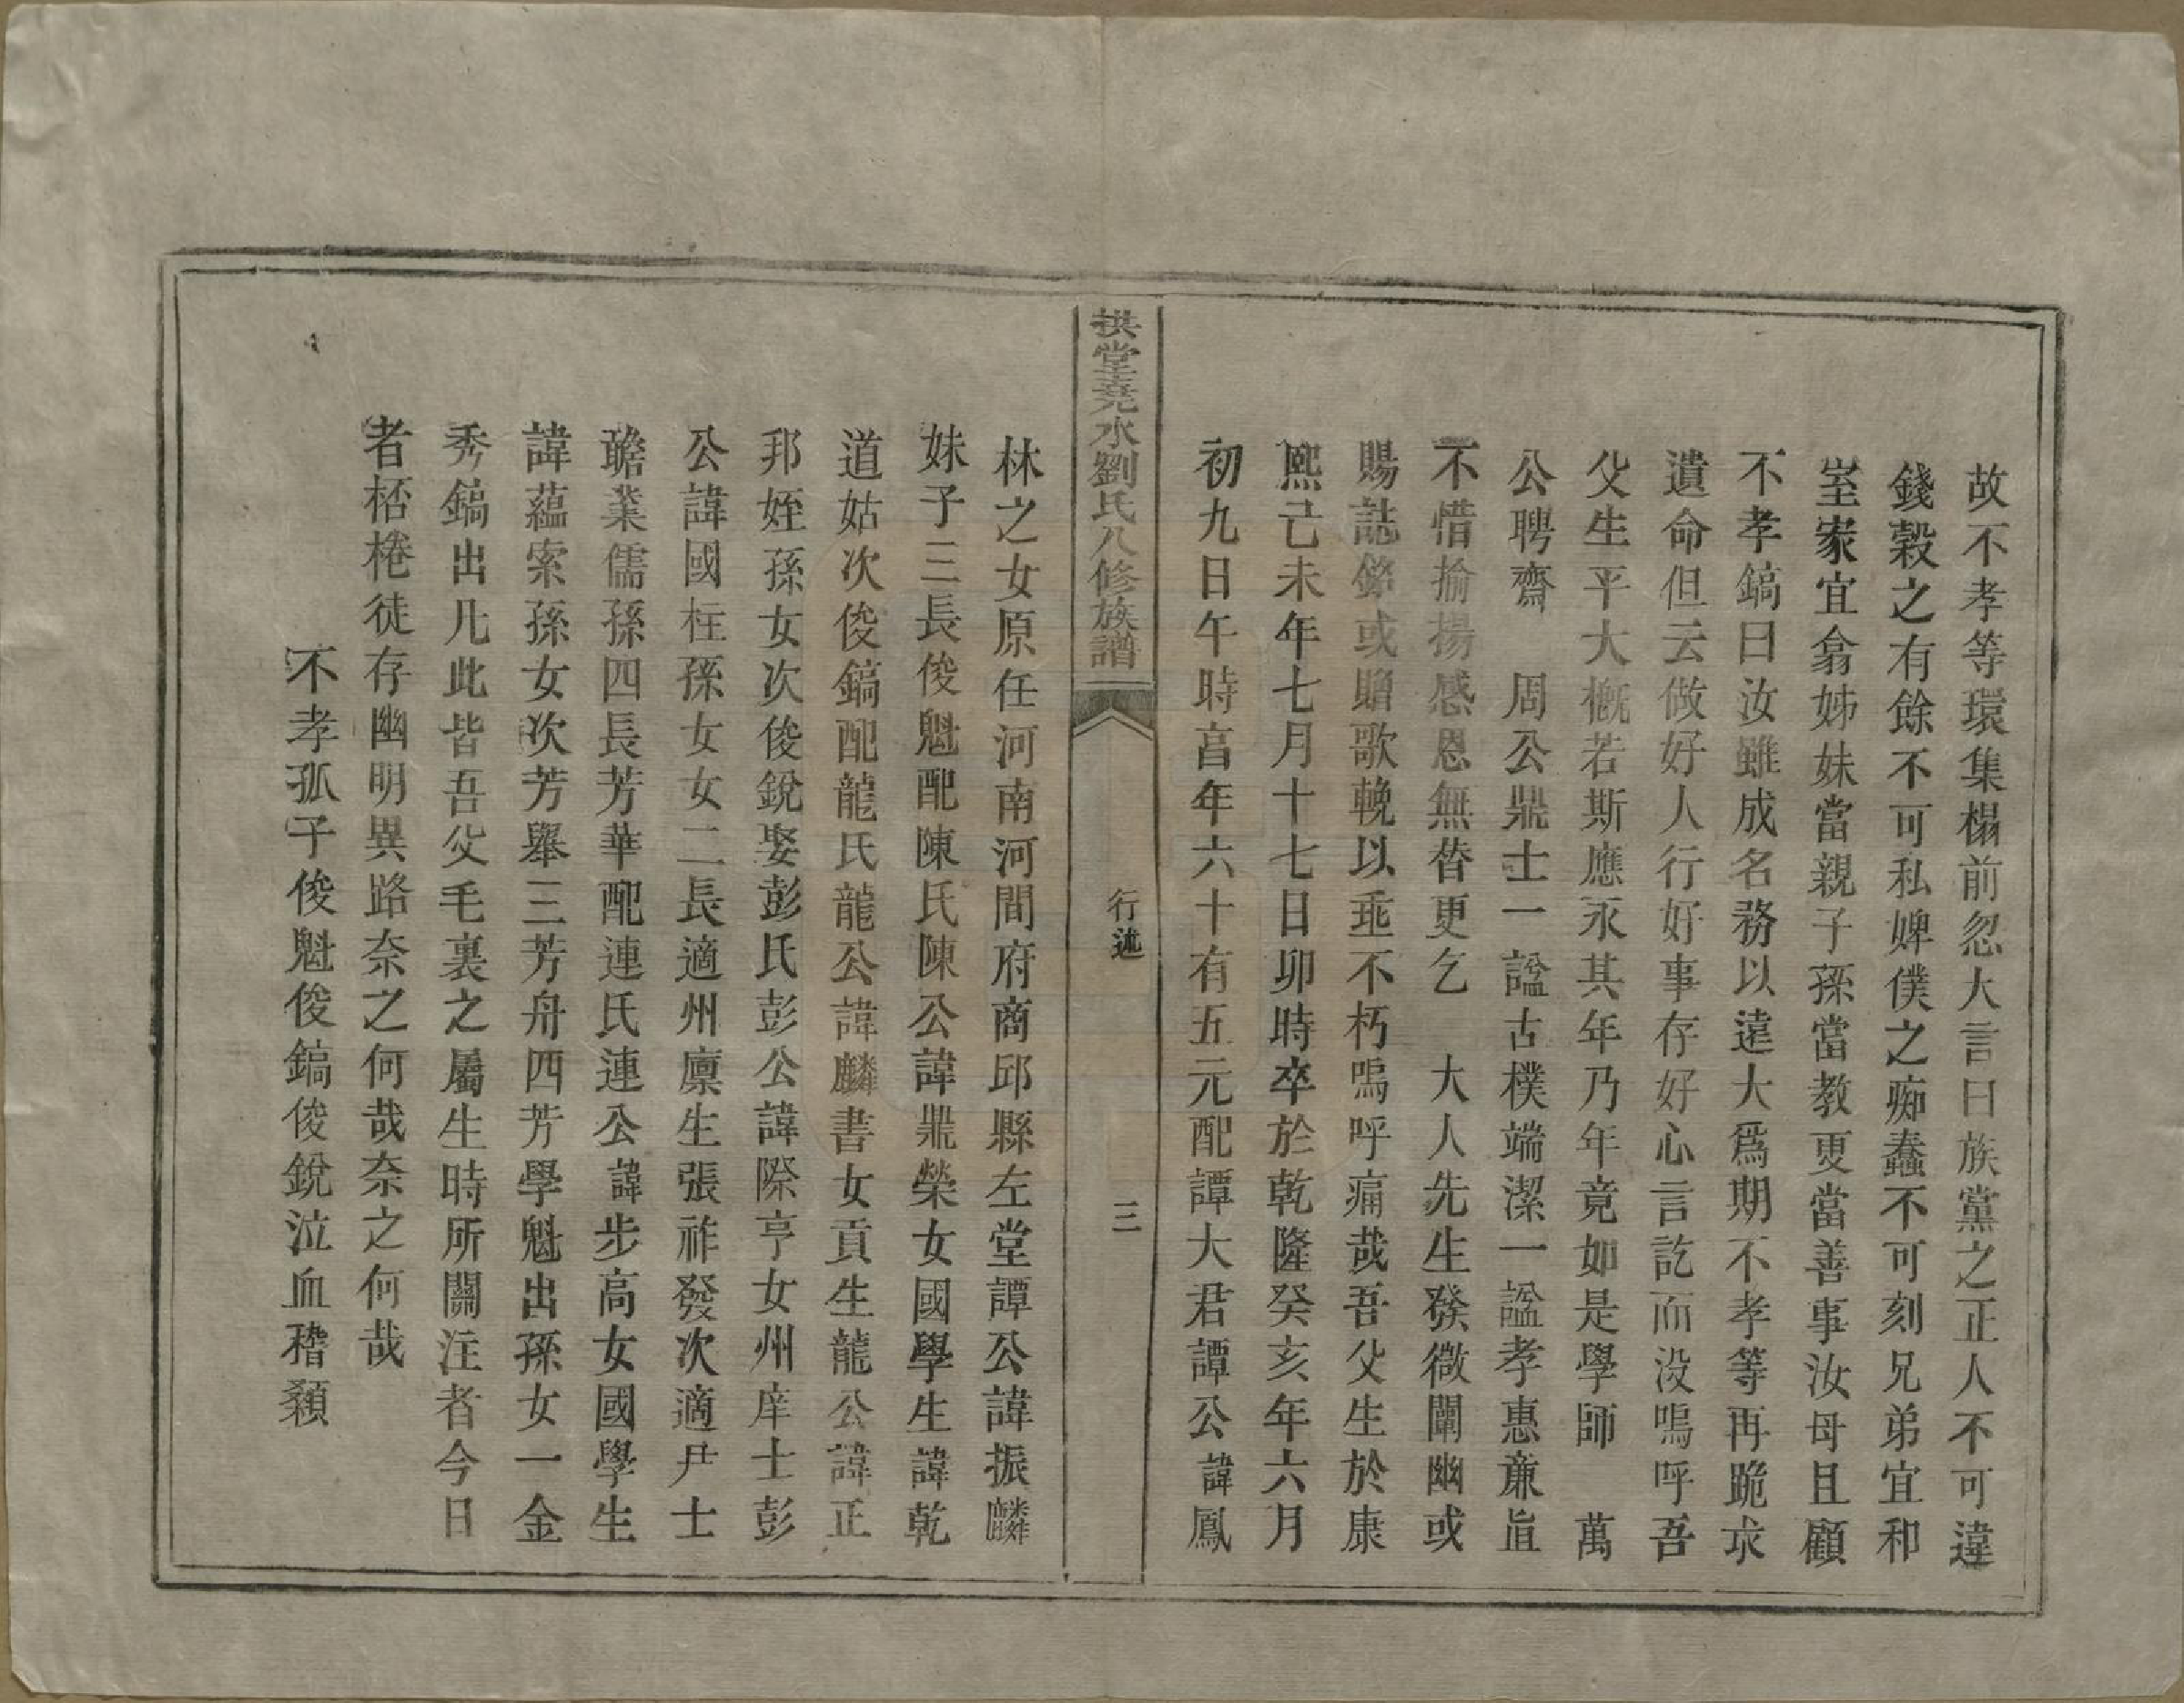 故不孝等環集榻前忽大言曰族黨之正人不可違
錢穀之有餘不可私婢僕之痴蠢不可刻兄弟宜和
室家宜翕姊妹當親子孫當教更當善事汝母且顧
不孝鎬曰汝雖成名務以遠大爲期不孝等再跪求
遺命但云做好人行好事存好心言訖而没嗚呼吾
父生平大槪若斯應永其年乃年竟如是學師　萬
公聘齋　周公鼎士一諡古樸端潔一諡孝惠亷直
不惜揄揚感恩無替更乞　大人先生發微闡幽或
賜誌銘或贈歌輓以埀不朽嗚呼痛哉吾父生於康
熙己未年七月十七日卯時卒於乾隆癸亥年六月
初九日午時享年六十有五元配譚大君譚公諱鳳
拱堂堯水劉氏八修族譜　行述　三
林之女原任河南河間府商邱縣左堂譚公諱振麟
妹子三長俊魁配陳氏陳公諱鼎榮女國學生諱乾
道姑次俊鎬配龍氏龍公諱麟書女貢生龍公諱正
邦姪孫女次俊銳娶彭氏彭公諱際亨女州庠士彭
公諱國柱孫女女二長適州廪生張祚發次適尹士
瞻業儒孫四長芳華配連氏連公諱步高女國學生
諱蘊索孫女次芳舉三芳舟四芳學魁出孫女一金
秀鎬出凡此皆吾父毛裏之屬生時所關注者今日
者桮棬徒存幽明異路奈之何哉奈之何哉
不孝孤子俊魁俊鎬俊銳泣血稽顙